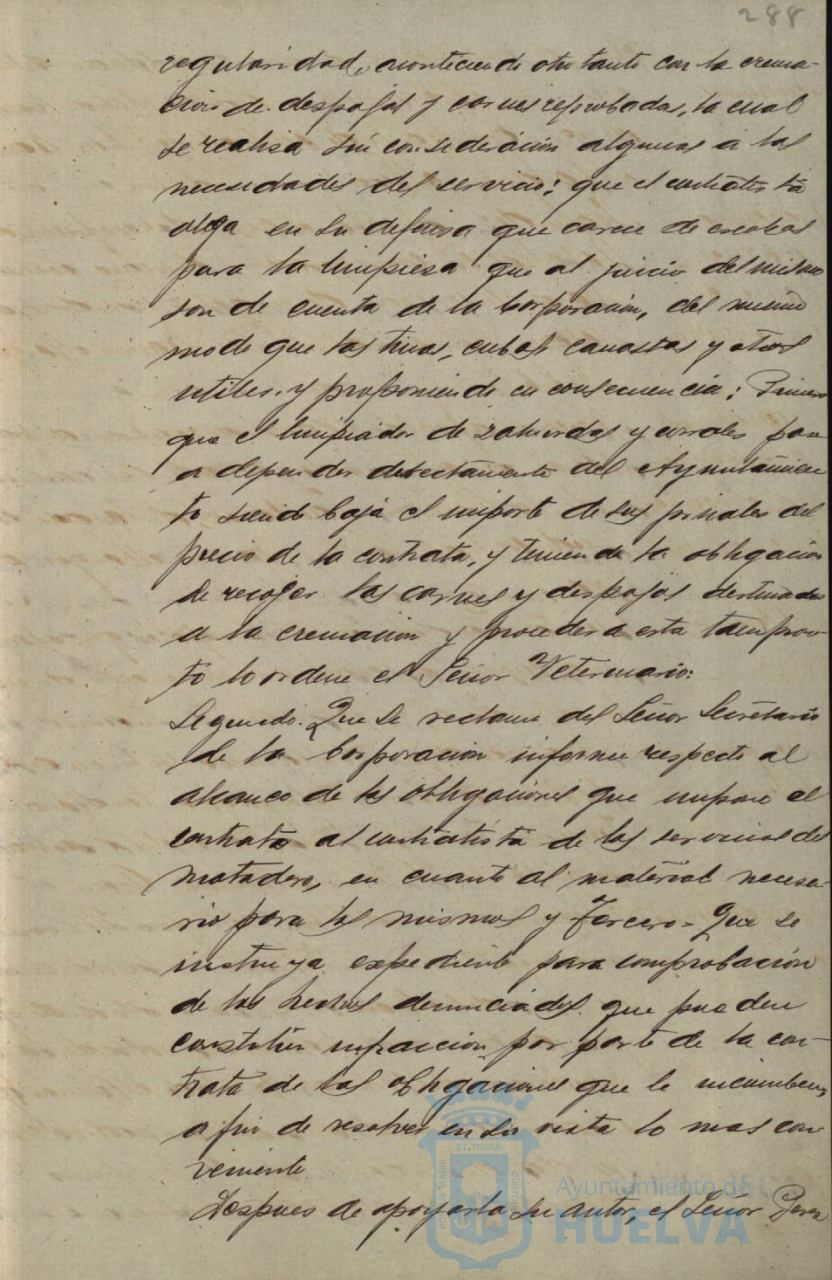 288
regularidad, aconteciendo otro tanto con la crema-
cion de despojos y carnes reprobadas, la cual
se realisa sin consideración alguna a las
necesidades del servicio; que el contratista
alega en su defensa que carece de escobas
para la limpiesa que al juicio del mismo
son de cuenta de la Corporación, del mismo
modo que las tinas, cubos canastas y otros
utiles. y proponiendo en consecuencia: Primero
que el limpiador de zahurdas y corrales pase
a depender directamente del Ayuntamien
to siendo baja el importe de sus jornales del
precio de la contrata, y teniendo la obligación
de recojer las carnes y despojos destinados
a la cremación y proceder a esta tan pron-
to lo ordene el Señor Veterinario:
Segundo. Que se reclame del Señor Secretario
de la Corporacion informe respecto al
alcance de las obligaciones que impone el
contrato al contratista de los servicios del
matadero, en cuanto al material necesa-
rio para los mismos y Tercero- Que se
instruya expediente para comprobación
de los hechos denunciados que pueden
constituir infraccion por parte de la con-
trata de las obligaciones que le incumben,
a fin de resolver en su vista lo mas con-
veniente
Despues de apoyarla su autor, el Señor Perez
ET TERRA
Ayuntamiento de
HUELVA